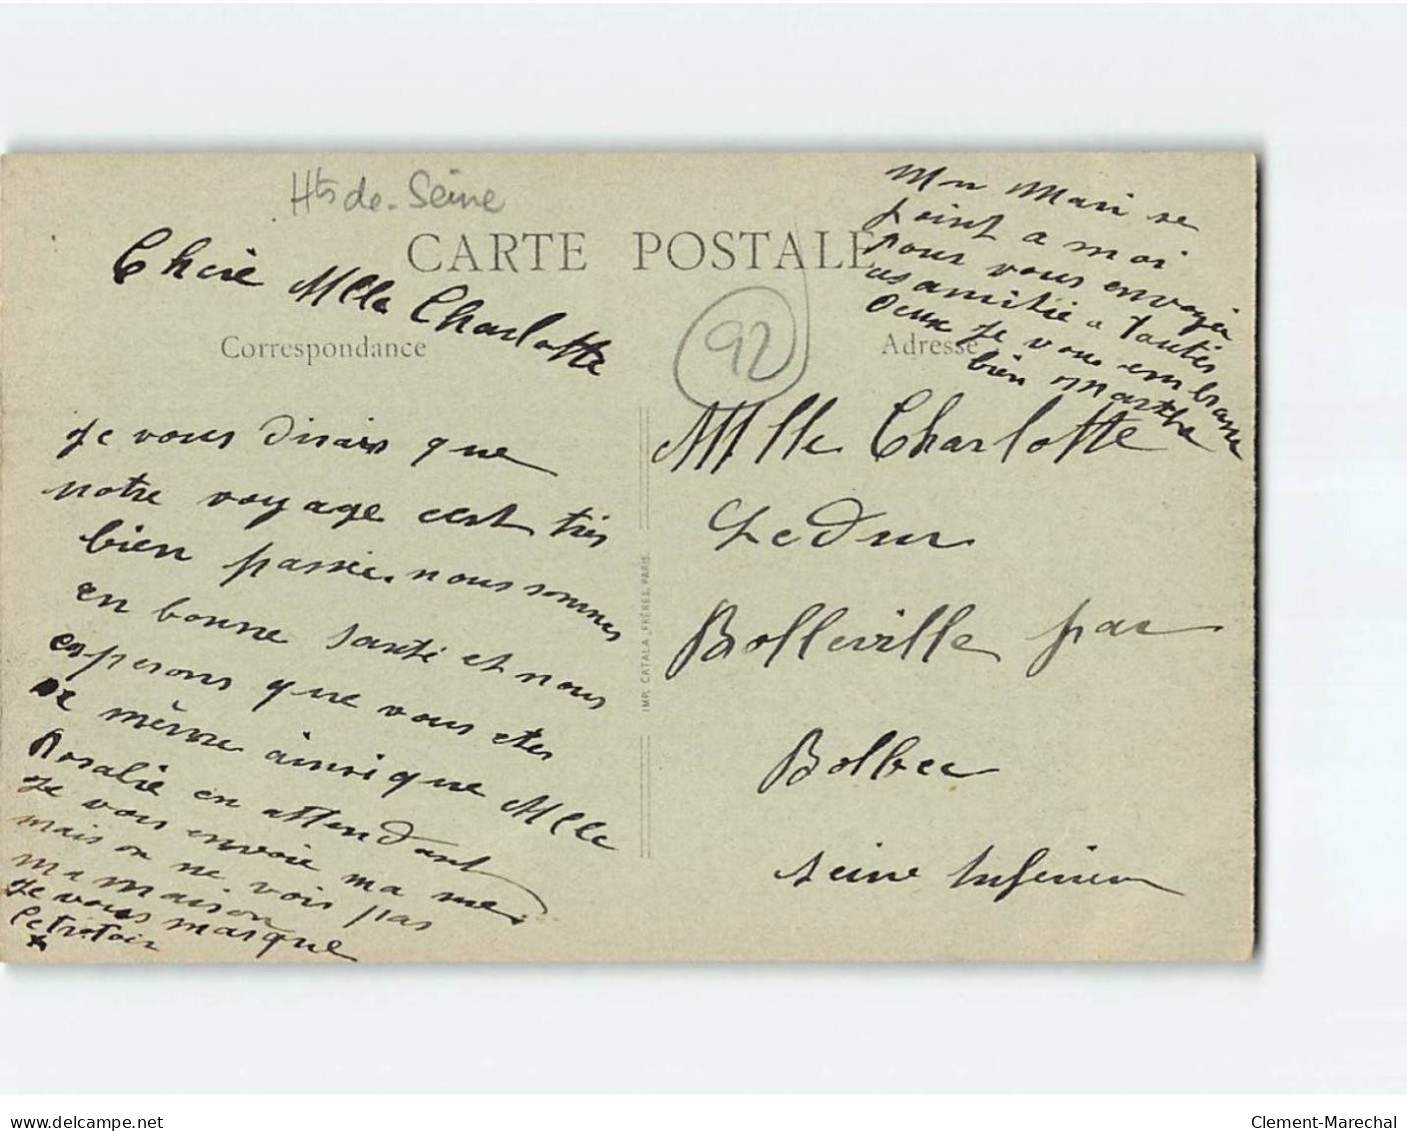 Hts de-Seine
CARTE POSTALE
92
Correspondance
Adresse
Chere Mlle Charlotte
je vous disais que
notre voyage cest très
bien passée. nous sommes
en bonne santé et nous
esperons que vous etes
de même ainsi que Mlle
Rosalie en attendant
je vous envoie ma me
mais on ne vois pas
ma maison
je vous marque
le trotoir
x
Mon Mari se
joint a moi
pour vous envoyer
ces amitie a toutes
deux je vous embrasse
bien Marthe
Mlle Charlotte
Leduc
Bolleville par
Bolbec
seine Inferieu
IMP. CATALA FRÈRES, PARIS
delcampe.net
Clement-Marechal